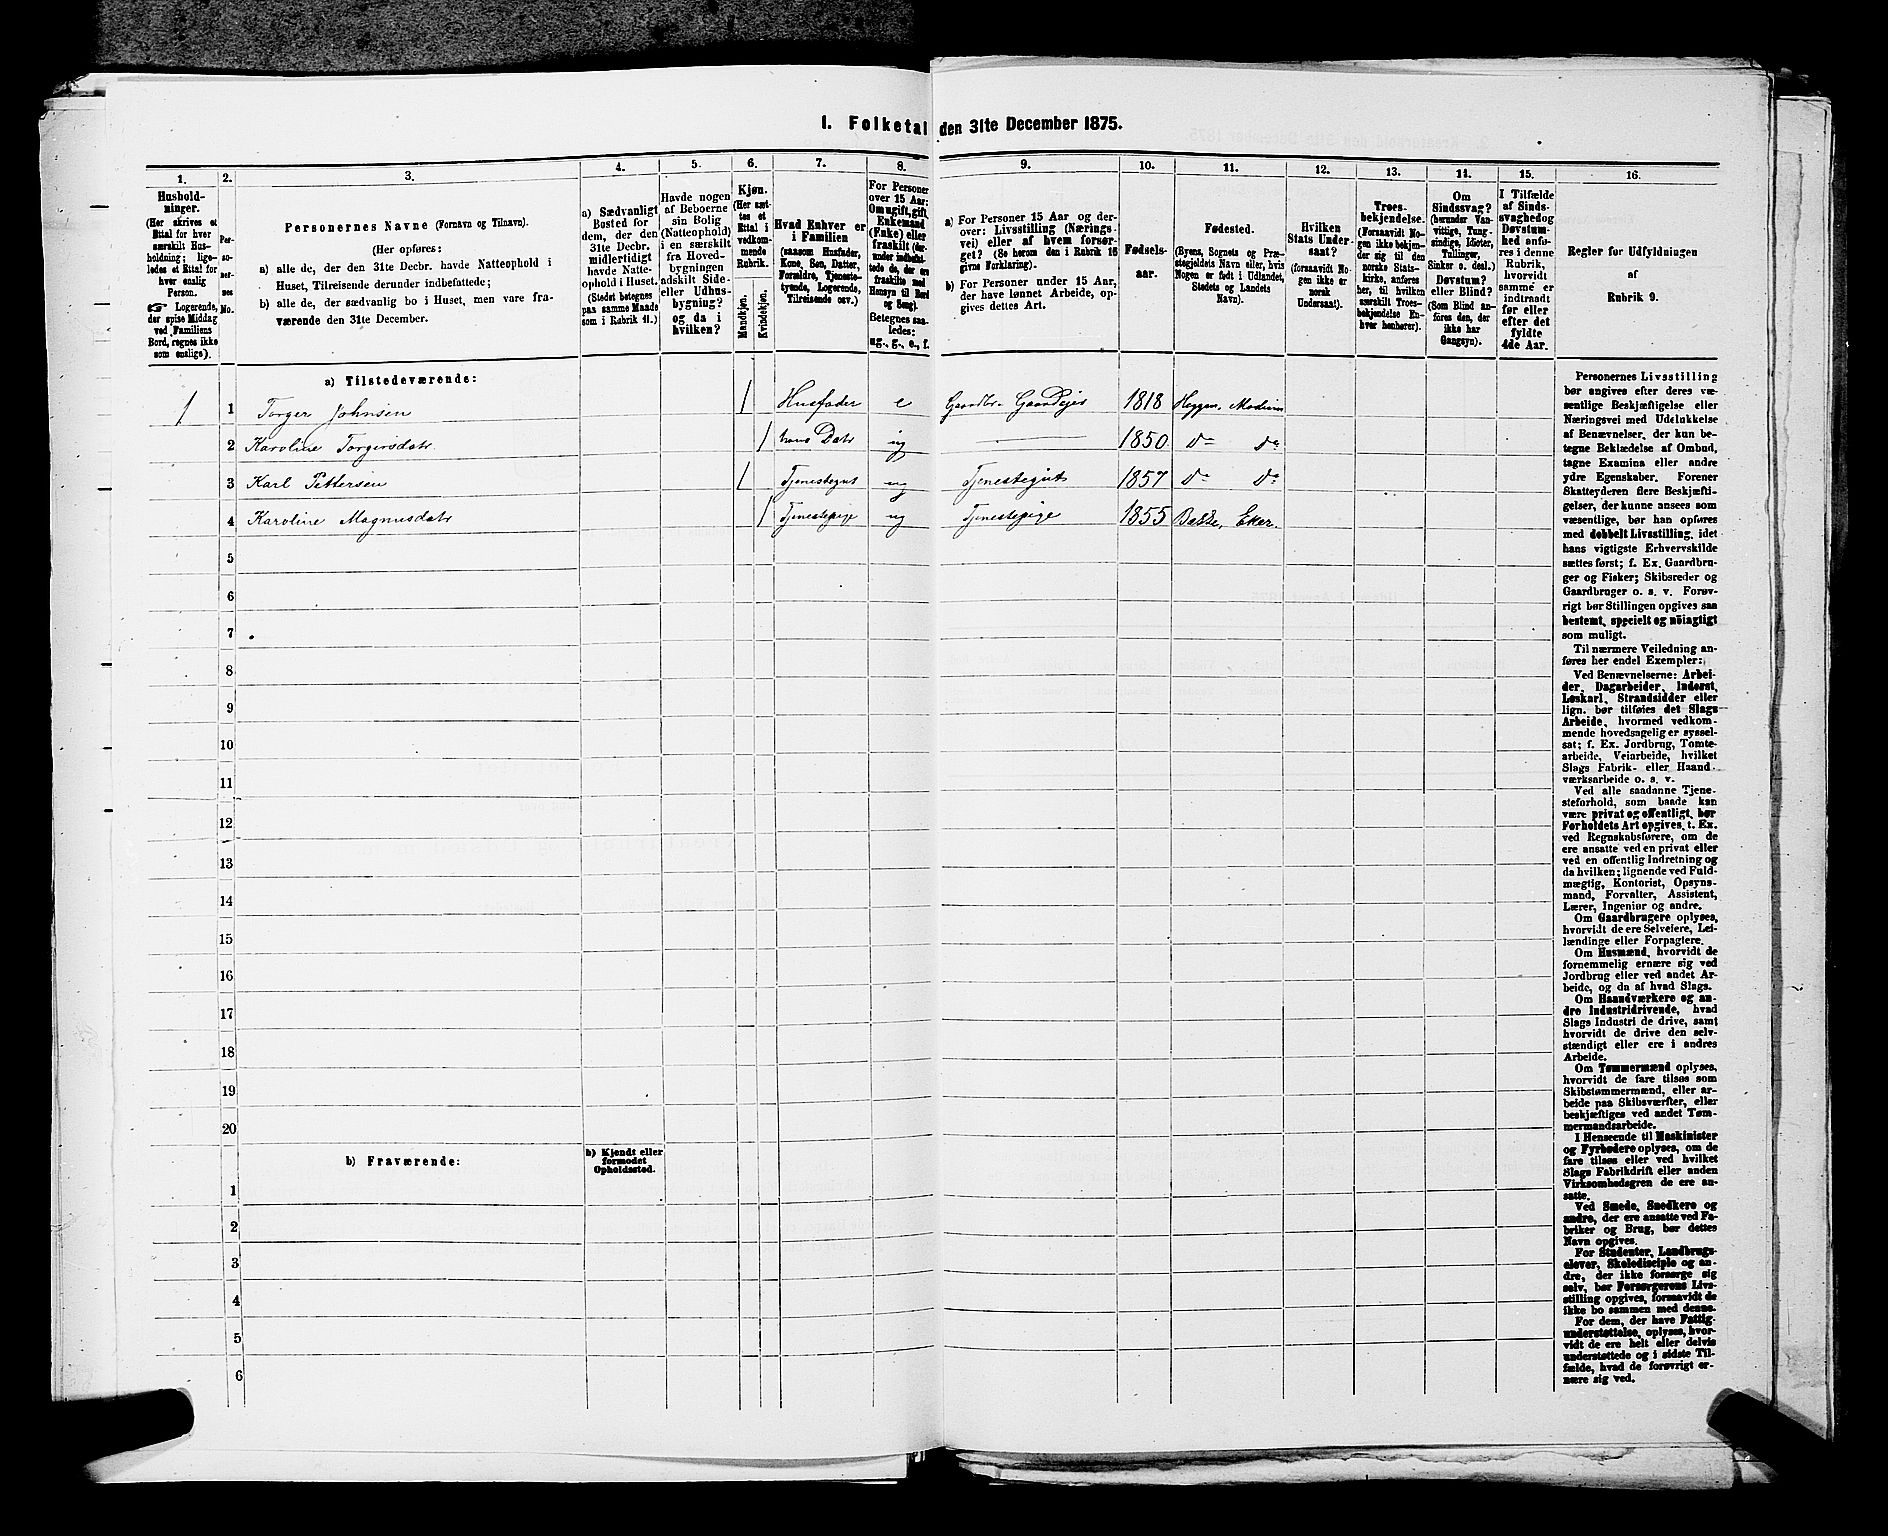 1. Folketal den 31te December 1875.
1. 2. 3. 4. 5. 6. 7. 8. 9. 10. 11. 12. 13. 14. 15. 16.
Hushold-
ninger.
(Her skrives et
Ettal for hver
særskilt Hus-
holdning; lige-
ledes et Ettal for
hver enslig
Person.
☞ Logerende,
der spise Middag
ved Familiens
Bord, regnes ikke
som enslige).
Per-
so-
ner-
nes
No.
Personernes Navne (Fornavn og Tilnavn).
(Her opføres:
a) alle de, der den 31te Decbr. havde Natteophold i
Huset, Tilreisende derunder indbefattede;
b) alle de, der sædvanlig bo i Huset, men vare fra-
værende den 31te December.
a) Sædvanligt
Bosted for
dem, der den
31te Decbr.
midlertidigt
havde Natte-
ophold i Huset.
(Stedet betegnes
paa samme Maade
som i Rubrik 11.)
Havde nogen
af Beboerne
sin Bolig
(Natteophold)
i en særskilt
fra Hoved-
bygningen
adskilt Side-
eller Udhus-
bygning?
og da i
hvilken?
Kjøn.
(Her sæt-
tes et
Ettal i
vedkom-
mende
Rubrik.
Mandkjøn.
Kvindekjøn.
Hvad Enhver er
i Familien
(saasom Husfader,
Kone, Søn, Datter,
Forældre, Tjeneste-
tyende, Logerende,
Tilreisende osv.)
For Personer
over 15 Aar:
Om ugift, gift,
Enkemand
(Enke) eller
fraskilt (der-
under indbefat-
tede de, der ere
fraskilte med
Hensyn til Bord
og Seng).
Betegnes saa-
ledes:
ug., g., e., f.
a) For Personer 15 Aar og der-
over: Livsstilling (Nærings-
vei) eller af hvem forsør-
get? (Se herom den i Rubrik 16
givne Forklaring).
b) For Personer under 15 Aar,
der have lønnet Arbeide, op-
gives dettes Art.
Fødsels-
aar.
Fødested.
(Byens, Sognets og Præ-
stegjeldets Navn eller, hvis
Nogen er født i Udlandet,
Stedets og Landets
Navn).
Hvilken
Stats Under-
saat?
(forsaavidt No-
gen ikke er
norsk
Undersaat).
Troes-
bekjendelse.
(Forsaavidt No-
gen ikke bekjen-
der sig til den
norske Stats-
kirke, anføres
her, til hvilken
særskilt Troes-
bekjendelse En-
hver henhører).
Om
Sindssvag?
(herunder Van-
vittige, Tung-
sindige, Idioter,
Tullinger,
Sinker o. desl.)
Døvstum?
eller Blind?
(Som Blind an-
føres den, der
ikke har
Gangsyn).
I Tilfælde
af Sinds-
svaghed og
Døvstum-
hed anfø-
res i denne
Rubrik,
hvorvidt
samme er
indtraadt
før eller
efter det
fyldte
4de Aar.
Regler for Udfyldningen
af
Rubrik 9.
a) Tilstedeværende:
1 1 Torger Johnsen 1 Husfader e Gaardbr. Gaardejer 1818 Heggen, Modum
2 Karoline Torgersdatr. 1 hans Datr ug 1850 do do
3 Karl Pettersen 1 Tjenestegut ug Tjenestegut 1857 do do
4 Karoline Magnusdatr 1 Tjenestepige ug Tjenestepige 1855 Bakke, Eker.
5
6
7
8
9
10
11
12
13
14
15
16
17
18
19
20
b) Fraværende:
b) Kjendt eller
formodet
Opholdssted.
1
2
3
4
5
6
Personernes Livsstilling
bør angives efter deres væ-
sentlige Beskjæftigelse eller
Næringsvei med Udelukkelse
af Benævnelser, der kun be-
tegne Beklædelse af Ombud,
tagne Examina eller andre
ydre Egenskaber. Forener
Skatteyderen flere Beskjæfti-
gelser, der kunne ansees som
væsentlige, bør han opføres
med dobbelt Livsstilling, idet
hans vigtigste Erhvervskilde
sættes først; f. Ex. Gaardbru-
ger og Fisker; Skibsreder og
Gaardbruger o. s. v. Forøv-
rigt bør Stillingen opgives saa
bestemt, specielt og nøiagtigt
som muligt.
Til nærmere Veiledning an-
føres her endel Exempler:
Ved Benævnelserne: Arbei-
der, Dagarbeider, Inderst,
Løskarl, Strandsidder eller
lign. bør tilføies det Slags
Arbeide, hvormed vedkom-
mende hovedsagelig er syssel-
sat; f. Ex. Jordbrug, Tomte-
arbeide, Veiarbeide, hvilket
Slags Fabrik- eller Haand-
værksarbeide o. s. v.
Ved alle saadanne Tjene-
steforhold, som baade kan
være privat og offentligt, bør
Forholdets Art opgives, t. Ex.
ved Regnskabsførere, om de
ere ansatte ved en privat eller
ved en offentlig Indretning og
da hvilken; lignende ved Fuld-
mægtig, Kontorist, Opsyns-
mand, Forvalter, Assistent,
Lærer, Ingeniør og andre.
Om Gaardbrugere oplyses,
hvorvidt de ere Selveiere, Lei-
lændinge eller Forpagtere.
Om Husmænd, hvorvidt de
fornemmelig ernære sig ved
Jordbrug eller ved andet Ar-
beide, og da af hvad Slags.
Om Haandværkere og an-
dre Industridrivende, hvad
Slags Industri de drive, samt
hvorvidt de drive den selv-
stændigt eller ere i andres
Arbeide.
Om Tømmermænd oplyses,
hvorvidt de fare tilsøs som
Skibstømmermænd, eller ar-
beide paa Skibsværfter, eller
beskjæftiges ved andet Tøm-
mermandsarbeide.
I Henseende til Maskinister
og Fyrbødere oplyses, om de
fare tilsøs eller ved hvilket
Slags Fabrikdrift eller anden
Virksomhedsgren de ere an-
satte.
Ved Smede, Snedkere og
andre, der ere ansatte ved Fa-
briker og Brug, bør dettes
Navn opgives.
For Studenter, Landbrugs-
elever, Skoledisciple og an-
dre, der ikke forsørge sig
selv, bør Forsørgerens Livs-
stilling opgives, forsaavidt de
ikke bo sammen med denne.
For dem, der have Fattig-
understøttelse, oplyses, hvor-
vidt de ere helt eller delvis
understøttede og i sidste Til-
fælde, hvad de forøvrigt er-
nære sig ved.